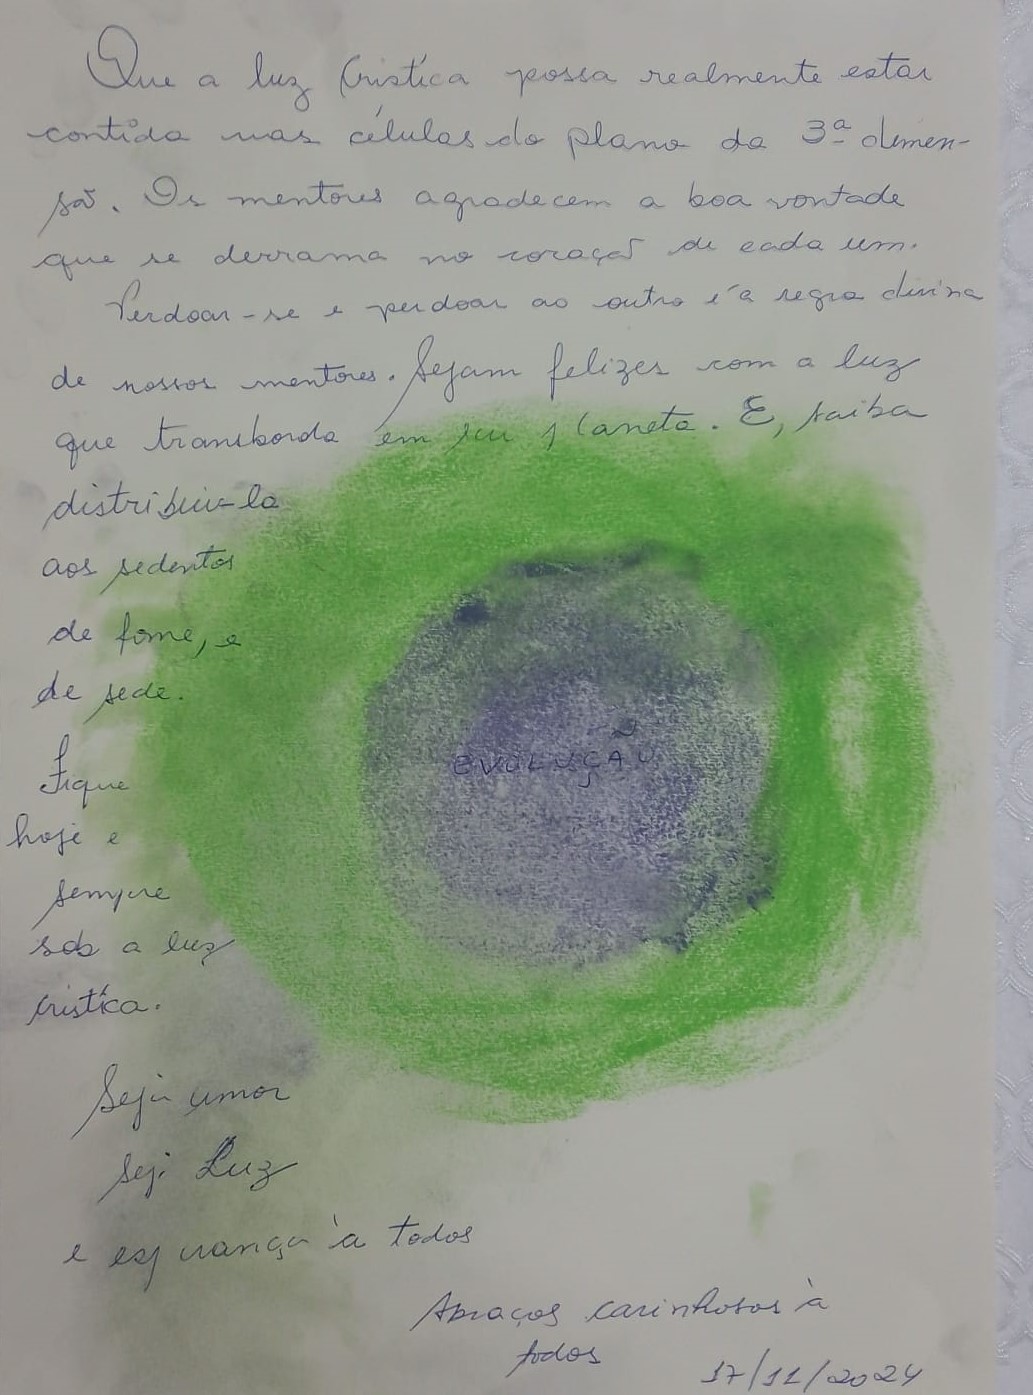 Que a luz Crística possa realmente estar
contida nas células do plano da 3ª dimen-
são. Os mentores agradecem a boa vontade
que se derrama no coração de cada um.
Perdoar-se e perdoar ao outro é a regra divina
de nossos mentores. Sejam felizes com a luz
que transborda em seu planeta. E, saiba
distribui-la
aos sedentos
de fome, e
de sede.
EVOLUÇÃO
Fique
hoje e
sempre
sob a luz
crística.
Seja amor
seja Luz
e esperança à todos
Abraços carinhosos à
todos
17/11/2024